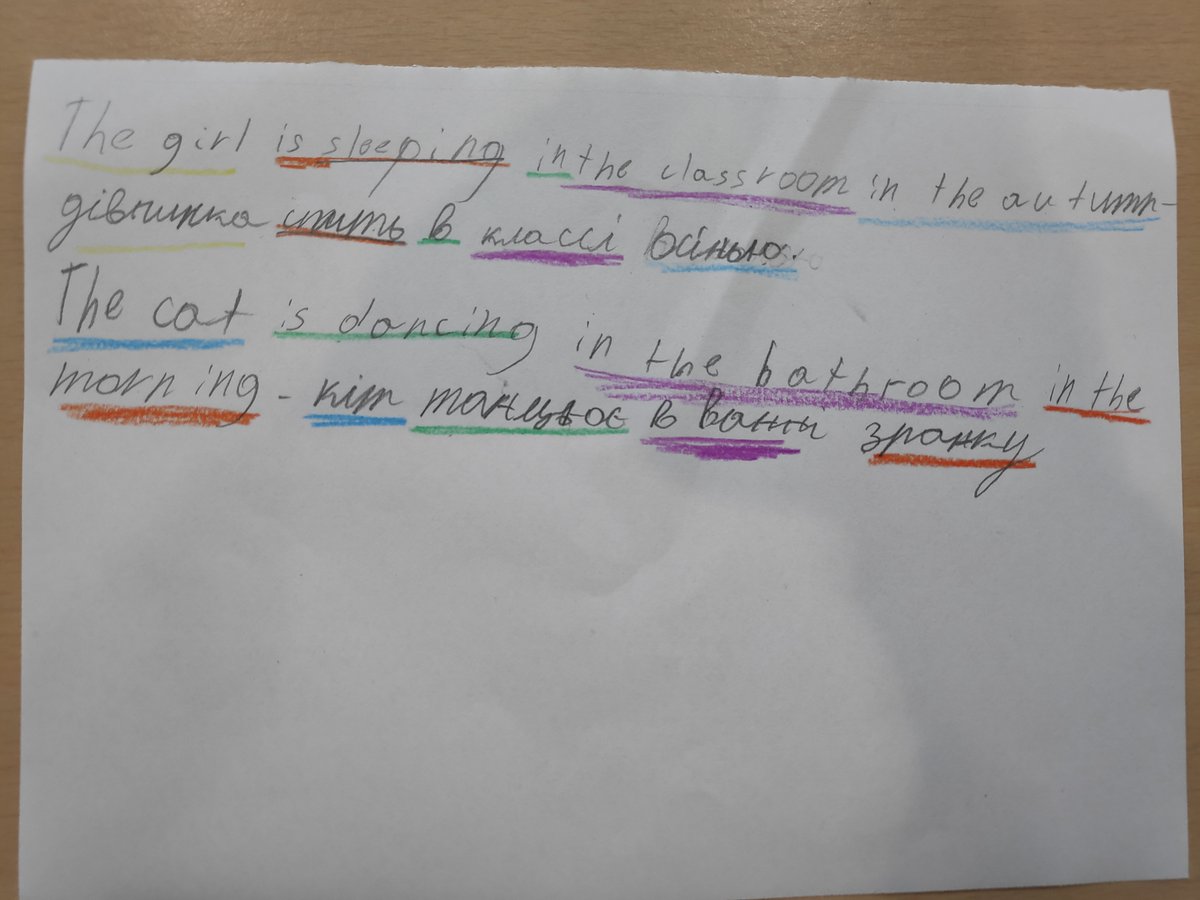 The girl is sleeping in the classroom in the autumn -
дівчинка спить в классі восінью.
The cat is dancing in the bathroom in the
morning - кіт танцює в ванні зранку